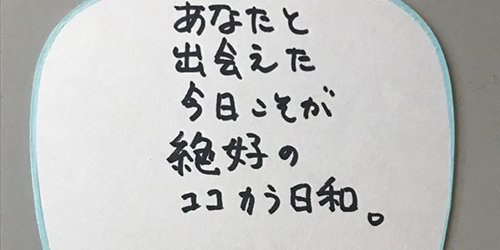 あなたと
出会えた
今日こそが
絶好の
ココカラ日和。